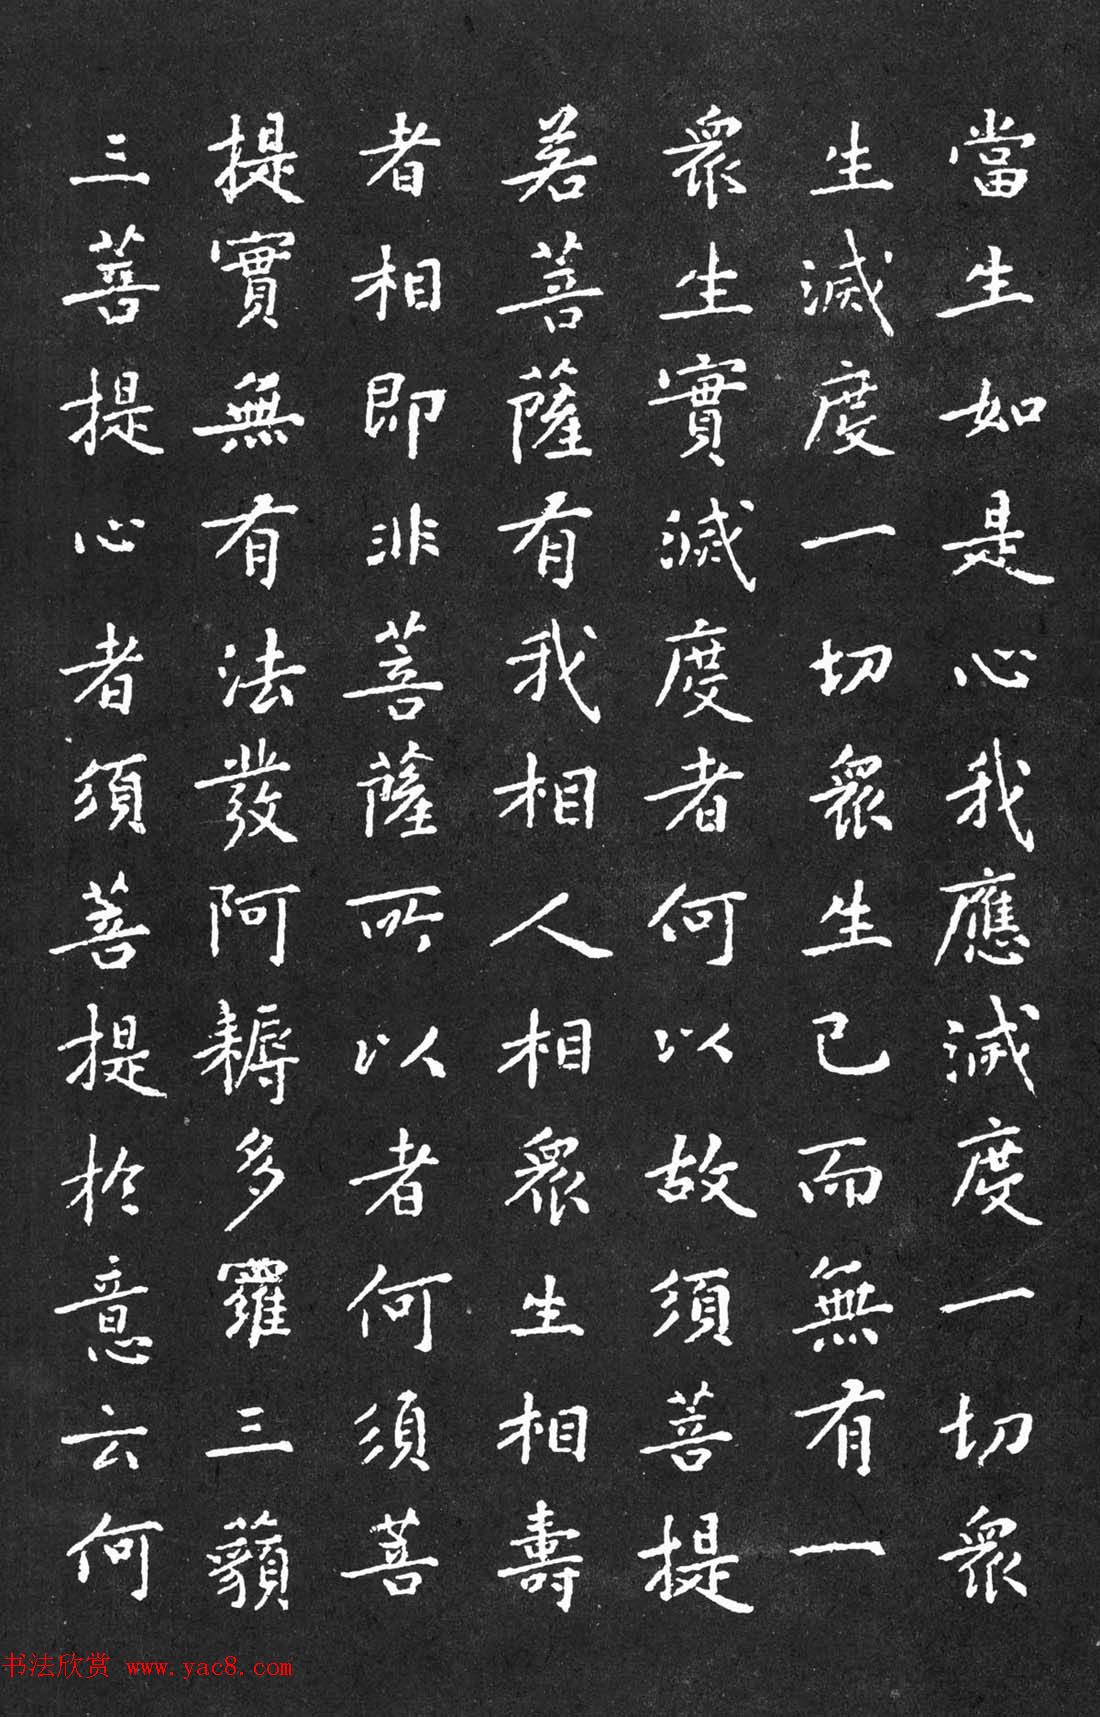 當生如是心我應滅度一切衆
生滅度一切衆生已而無有一
衆生實滅度者何以故須菩提
若菩薩有我相人相衆生相壽
者相即非菩薩所以者何須菩
提實無有法發阿耨多羅三藐
三菩提心者須菩提於意云何
书法欣赏 www.yac8.com